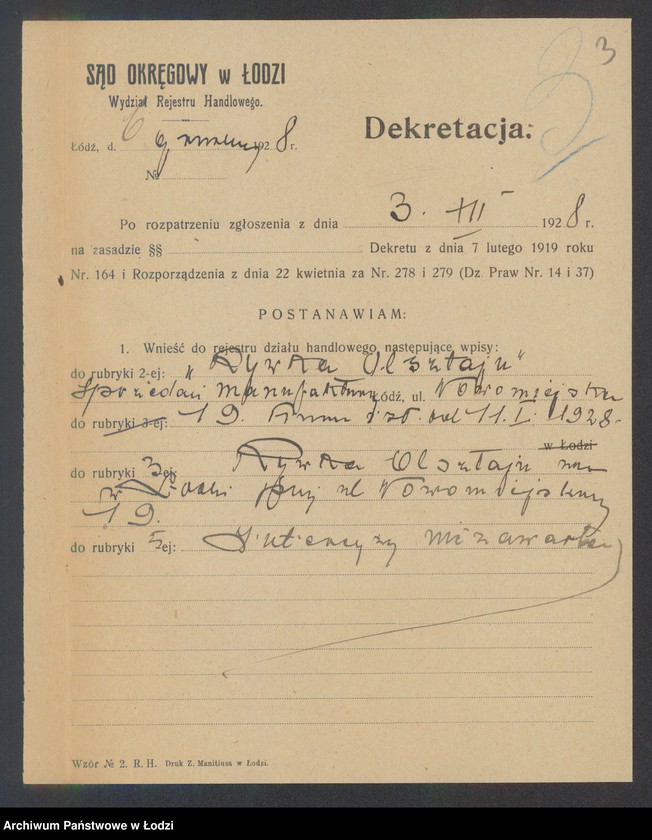 3
SĄD OKRĘGOWY w ŁODZI
Wydział Rejestru Handlowego.
Łódź, d. 6 grudnia 1928 r.
№
Dekretacja.
Po rozpatrzeniu zgłoszenia z dnia 3. XII 1928 r.
na zasadzie §§ Dekretu z dnia 7 lutego 1919 roku
Nr. 164 i Rozporządzenia z dnia 22 kwietnia za Nr. 278 i 279 (Dz. Praw Nr. 14 i 37)
POSTANAWIAM:
1. Wnieść do rejestru działu handlowego następujące wpisy:
do rubryki 2-ej: „Rywka Olsztajn"
Sprzedaż manufaktury Łódź, ul. Nowomiejska
do rubryki 3-ej: 19. Firma istn. od 11.I. 1928.
w Łodzi
do rubryki 3 ej: Rywka Olsztajn zam
w Łodzi przy ul Nowomiejskiej
19.
do rubryki 5 ej: Intercyzy nie zawarła
Wzór № 2. R. H. Druk Z. Manitiusa w Łodzi.
Archiwum Państwowe w Łodzi